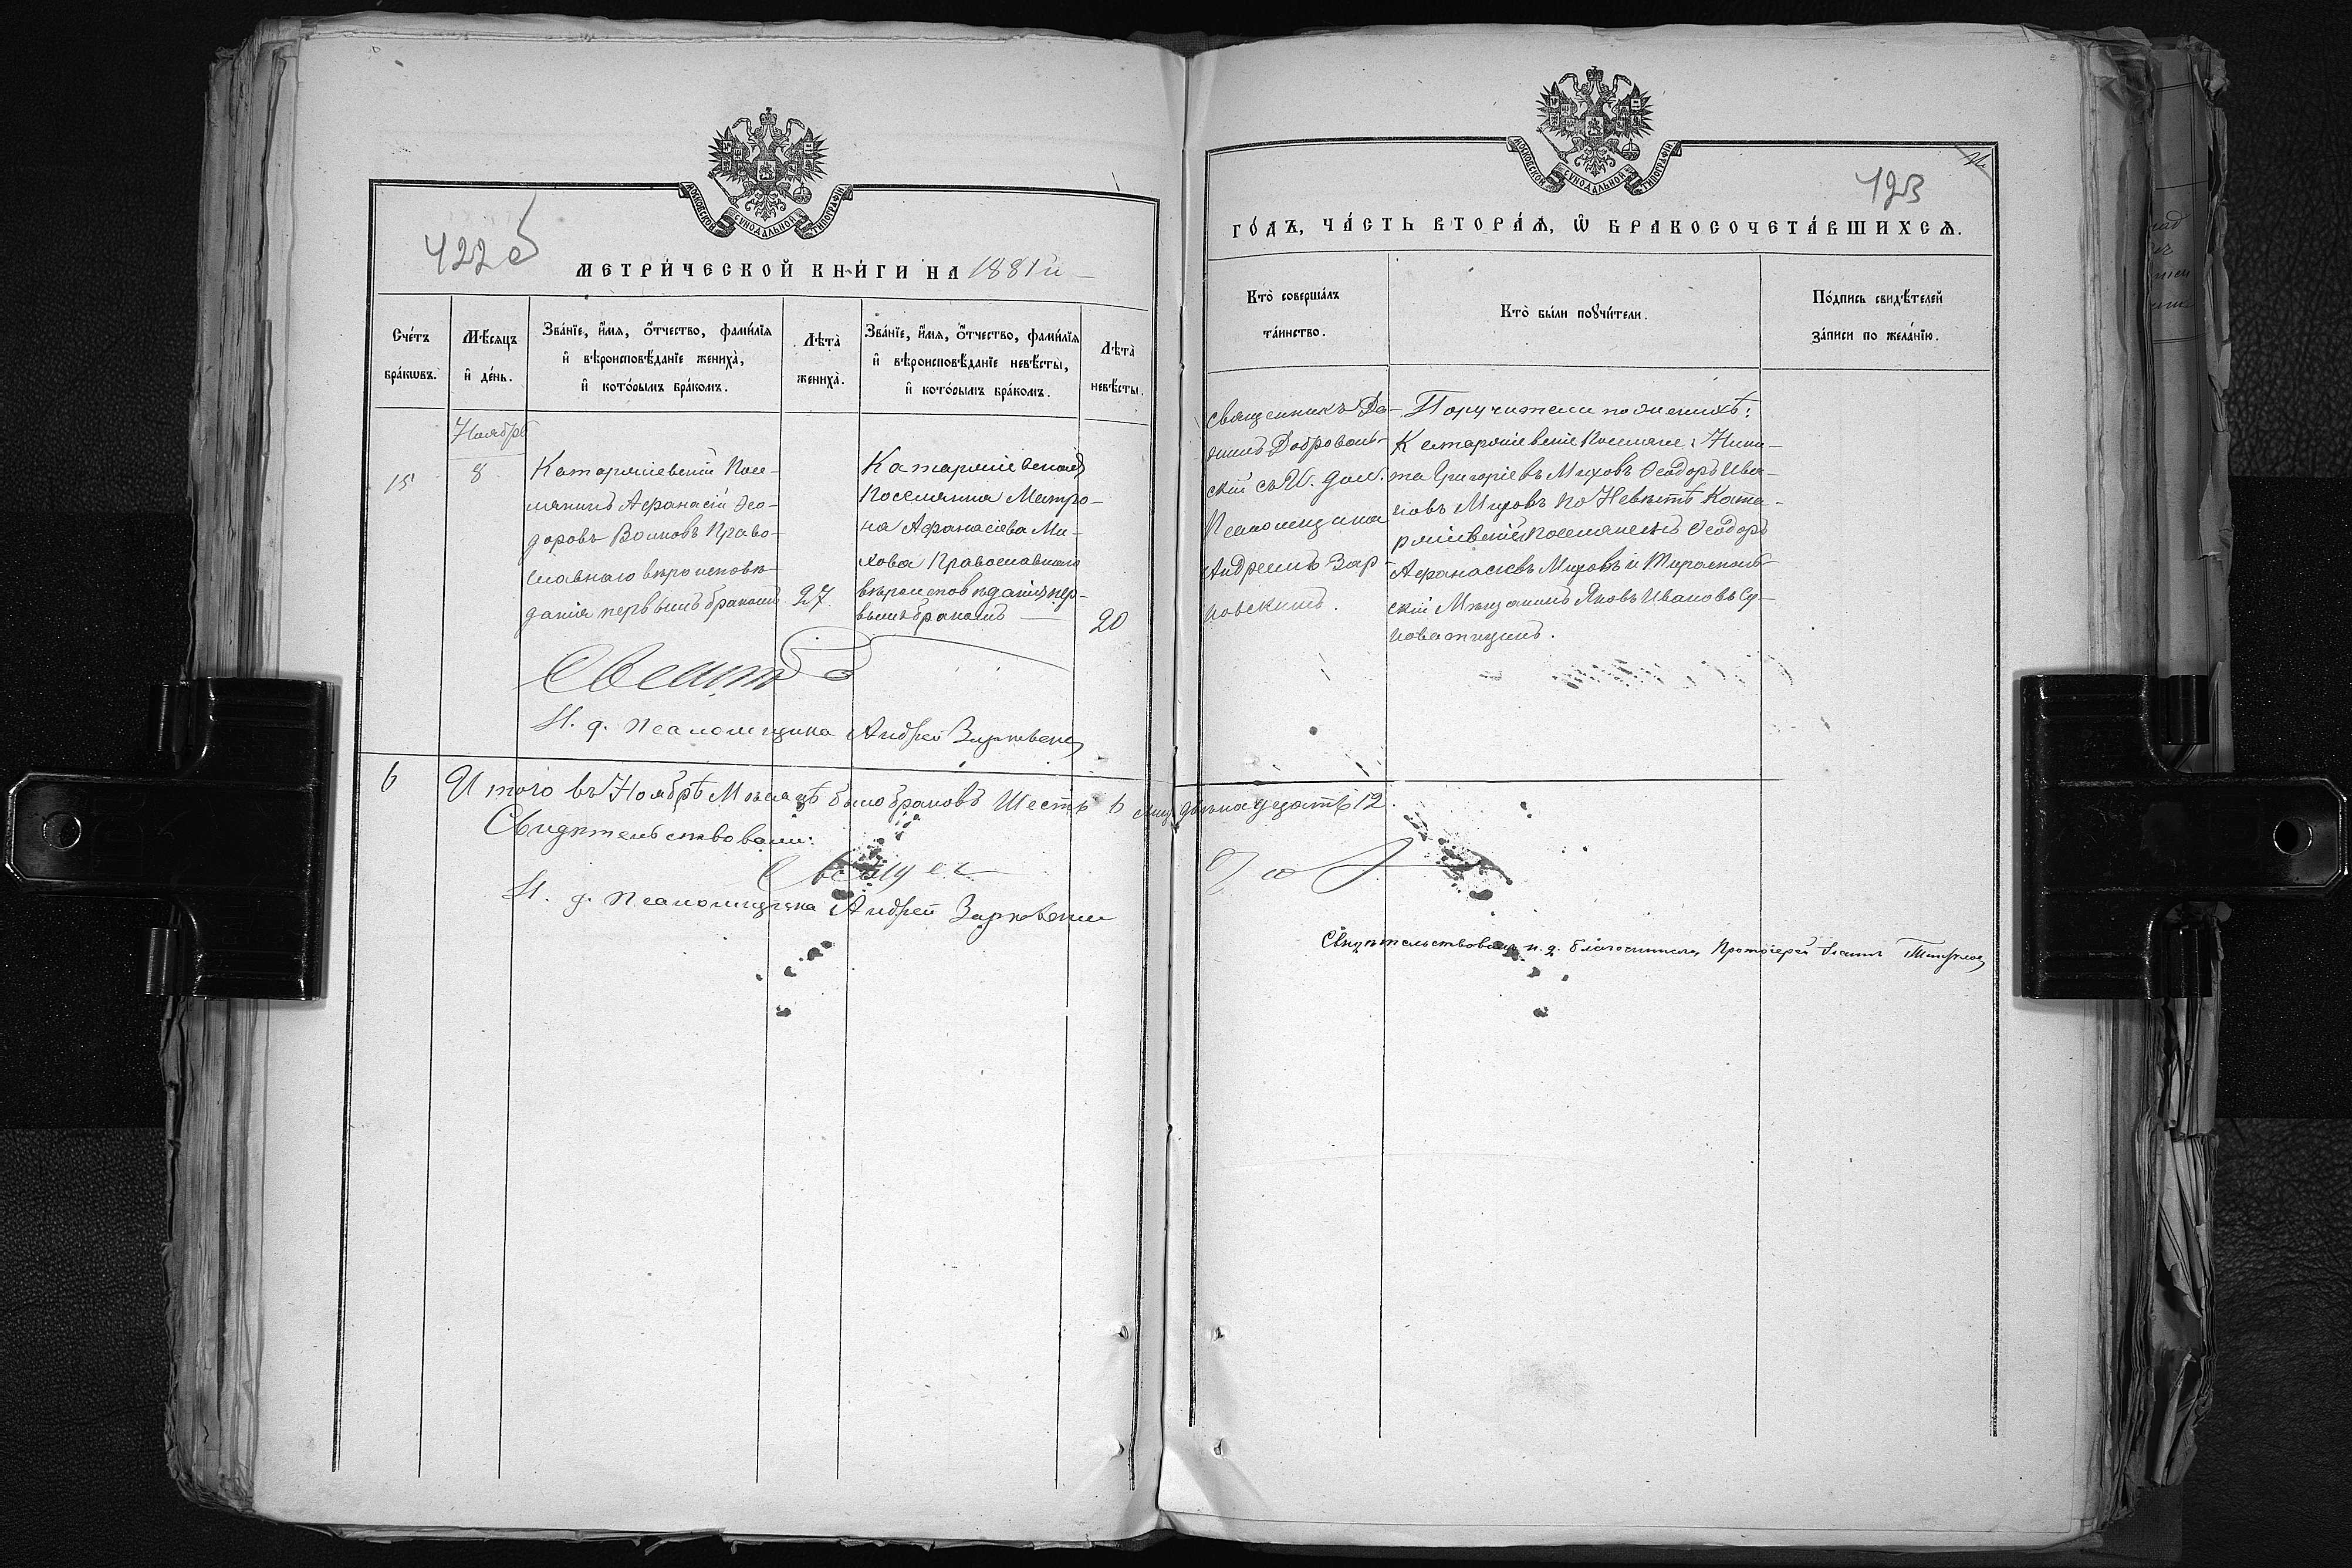 МОСКОВСКОЙ СѴНОДАЛЬНОЙ ТИПОГРАФІИ
422 об
МЕТРИ́ЧЕСКОЙ КНИ́ГИ НА 1881й
Сче́тъ бра́кωвъ.
Мѣ́сяцъ и҆ де́нь.
Зва́нїе, и҆́мя, о҆́тчество, фами́лїя
и҆ вѣроисповѣ́данїе жениха̀,
и҆ кото́рымъ бра́комъ.
Лѣта̀ жениха̀.
Зва́нїе, и҆́мя, о҆́тчество, фами́лїя
и҆ вѣроисповѣ́данїе невѣ́сты,
и҆ кото́рымъ бра́комъ.
Лѣта̀ невѣ́сты.
Ноябрь
15
8
Катаржіевскій Посе-
лянинъ Афанасій Ѳео-
доровъ Волковъ Право-
славнаго вѣроисповѣ-
данія первымъ бракомъ
27.
Катаржіевская
Поселянка Матро-
на Афанасіева Ми-
хова Православнаго
вѣроисповѣданія пер-
вымъ бракомъ
20
И. д. псаломщика Андрей Зарковскій
6
Итого въ Ноябрѣ Мѣсяцѣ было браковъ Шесть 6 лицъ двѣнадцать 12.
Свидѣтельствовали:
И. д. псаломщика Андрей Зарковскій
МОСКОВСКОЙ СѴНОДАЛЬНОЙ ТИПОГРАФІИ
423
ГО́ДЪ, ЧА́СТЬ ВТОРА́Ѧ, Ѽ БРАКОСОЧЕТА́ВШИХСѦ.
Кто̀ соверша́лъ
та́инство.
Кто̀ бы́ли поꙋчи́тели.
По́дпись свидѣ́телей
за́писи по жела́нїю.
Священникъ
Доброволь-
скій съ И. дол.
Псаломщика
Андреемъ Зар-
ковскимъ.
Поручители по женихѣ:
Катаржіевскіе Поселяне: Ники-
та Григоріевъ Миховъ Ѳеодоръ Ива-
новъ Миховъ по Невѣстѣ Ката-
ржіевскій поселянинъ Ѳеодоръ
Афанасіевъ Миховъ и Тирасполь-
скій Мѣщанинъ Яковъ Ивановъ Су-
ховатицынъ.
Свидѣтельствовалъ и. д. благочиннаго, Протоіерей